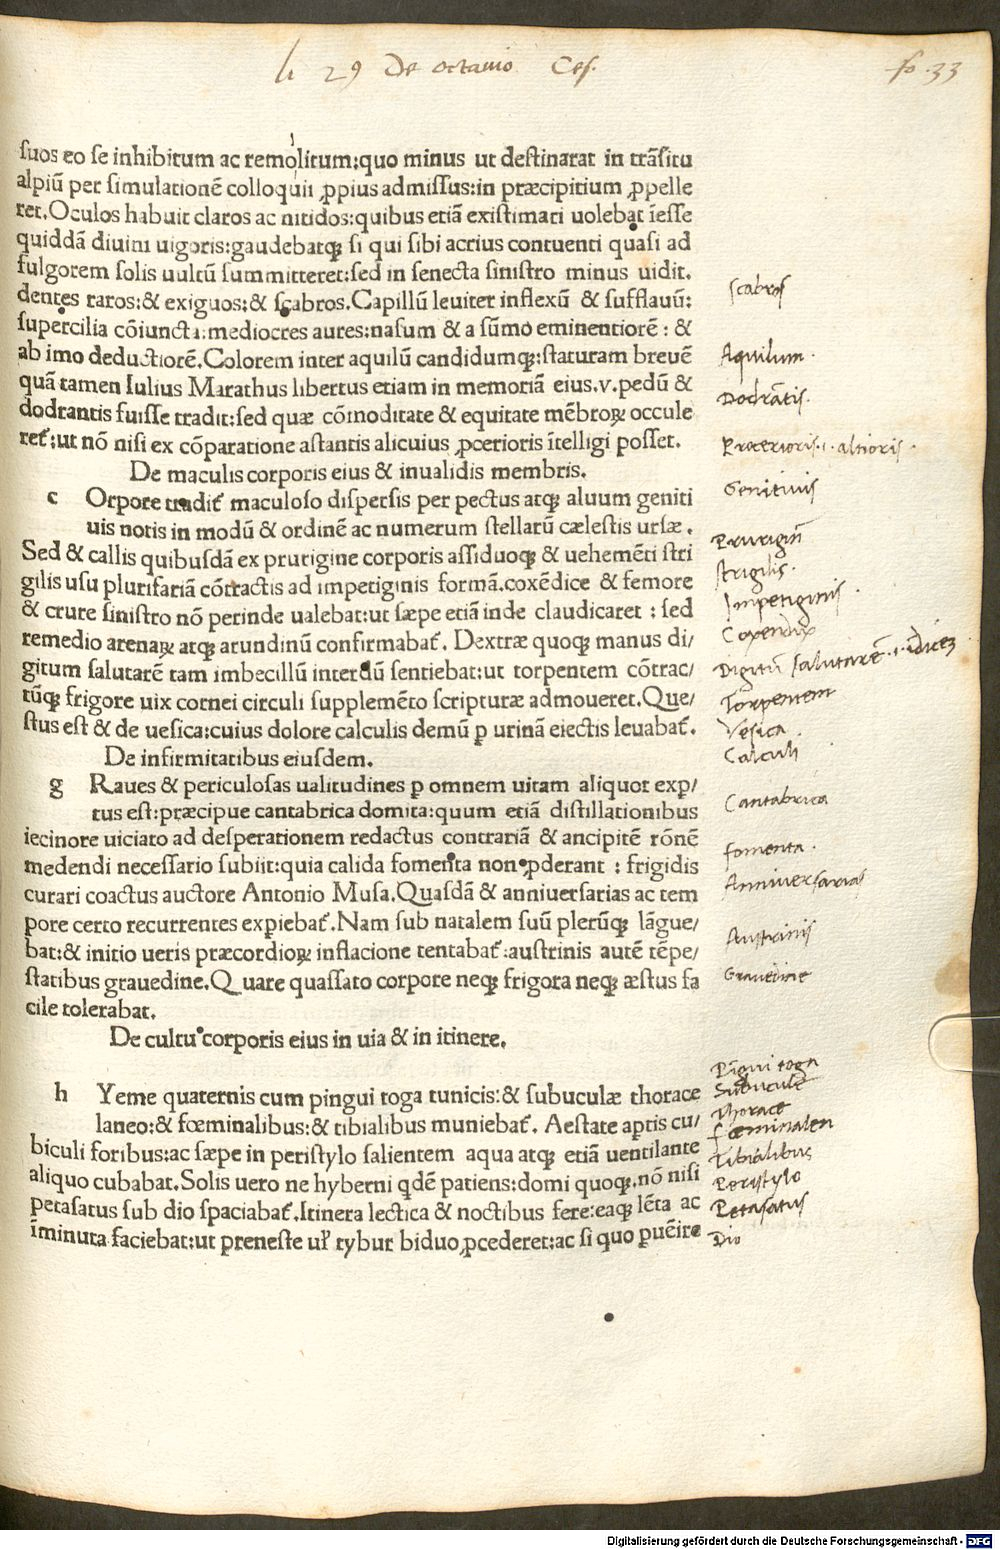 li 29 De octauio Ces. fo. 33
suos eo se inhibitum ac remolitum:quo minus ut destinarat in trāsitu
alpiū per simulationē colloquii ꝓpius admissus:in præcipitium ꝓpelle
ret.Oculos habuit claros ac nitidos:quibus etiā existimari uolebat īesse
quiddā diuini uigoris:gaudebatqꝫ si qui sibi acrius contuenti quasi ad
fulgorem solis uultū summitteret:sed in senecta sinistro minus uidit.
dentes raros:& exiguos:& scabros.Capillū leuiter inflexū & sufflauū:
supercilia cōiuncta:mediocres aures:nasum & a sūmo eminentiorē: &
ab imo deductiorē.Colorem inter aquilū candidumqꝫ:staturam breuē
quā tamen Iulius Marathus libertus etiam in memoriā eius.v.pedū &
dodrantis fuisse tradit:sed quæ cōmoditate & equitate mēbroꝝ occule
retᷣ:ut nō nisi ex cōparatione astantis alicuius ꝓcerioris ītelligi posset.
De maculis corporis eius & inualidis membris.
c Orpore traditᷣ maculoso dispersis per pectus atqꝫ aluum geniti
uis notis in modū & ordinē ac numerum stellarū cælestis ursæ.
Sed & callis quibusdā ex prurigine corporis assiduoqꝫ & uehemēti stri
gilis usu plurifariā cōtractis ad impetiginis formā.coxēdice & femore
& crure sinistro nō perinde ualebat:ut sæpe etiā inde claudicaret : sed
remedio arenaꝝ atqꝫ arundinū confirmabatᷣ. Dextræ quoqꝫ manus di/
gitum salutarē tam imbecillū interdū sentiebat:ut torpentem cōtrac/
tūqꝫ frigore uix cornei circuli supplemēto scripturæ admoueret.Que/
stus est & de uesica:cuius dolore calculis demū ꝑ urinā eiectis leuabatᷣ.
De infirmitatibus eiusdem.
g Raues & periculosas ualitudines ꝑ omnem uitam aliquot exp/
tus est:præcipue cantabrica domita:quum etiā distillationibus
iecinore uiciato ad desperationem redactus contrariā & ancipitē rōnē
medendi necessario subiit:quia calida fomenta non ꝓderant : frigidis
curari coactus auctore Antonio Musa.Quasdā & anniuersarias ac tem
pore certo recurrentes expiebatᷣ.Nam sub natalem suū plerūqꝫ lāgue/
bat:& initio ueris præcordioꝝ inflacione tentabatᷣ:austrinis autē tēpe/
statibus grauedine.Quare quassato corpore neqꝫ frigora neqꝫ æstus fa
cile tolerabat.
De cultu corporis eius in uia & in itinere.
h Yeme quaternis cum pingui toga tunicis:& subuculæ thorace
laneo:& fœminalibus:& tibialibus muniebatᷣ. Aestate aptis cu/
biculi foribus:ac sæpe in peristylo salientem aqua atqꝫ etiā uentilante
aliquo cubabat.Solis uero ne hyberni qdē patiens:domi quoqꝫ.nō nisi
petasatus sub dio spaciabatᷣ.Itinera lectica & noctibus fere:eaqꝫ lēta ac
īminuta faciebat:ut preneste ul' tybur biduo ꝓcederet:ac si quo puēire
scabros
Aquilum.
Dodrātis.
Procerioris .i. altioris.
Genitiuis
Prurigin̄
strigilis.
Impetiginis.
Coxendix
Digitū salutarē .i. īdicē
Torpentem
Vesica.
Calculi
Cantabrica
fomenta.
Anniuersarias
Austrinis
Grauedine
Pīgui toga
Subuculē
Thorace
fœminalen
Tibialibus
Peristylo
Petasatus
Dio
Digitalisierung gefördert durch die Deutsche Forschungsgemeinschaft - DFG